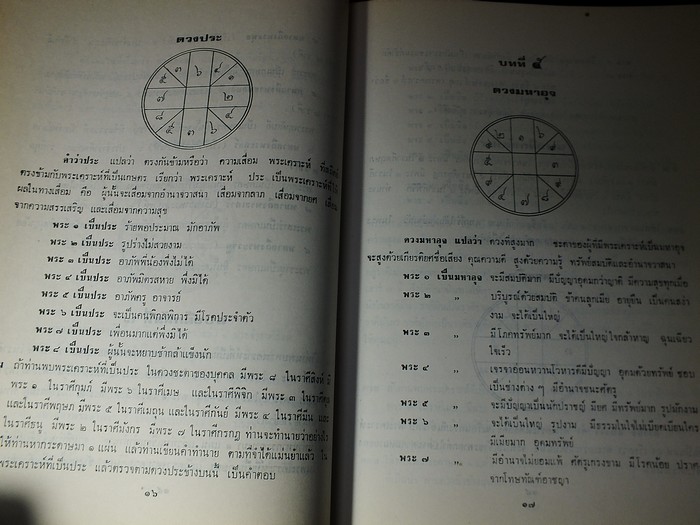 ดวงประ
๓ ๖ ๔
๕ ๑
๗ ๒
๘ ๕ ๓ ๖ ๔
คำว่าประ แปลว่า ตรงกันข้ามหรือว่า ความเสื่อม พระเคราะห์
ตรงข้ามกับพระเคราะห์ที่เป็นเกษตร เรียกว่า พระเคราะห์ ประ เป็นพระเคราะห์ที่ให้
ผลในทางเสื่อม คือ ผู้นั้นจะเสื่อมจากอำนาจวาสนา เสื่อมจากลาภ เสื่อมจากยศ เสื่อม
จากความสรรเสริญ และเสื่อมจากความสุข
พระ ๑ เป็นประ ร้ายพอประมาณ มักอาภัพ
พระ ๒ เป็นประ รูปร่างไม่สวยงาม
พระ ๓ เป็นประ อาภัพพี่น้องพึ่งไม่ได้
พระ ๔ เป็นประ อาภัพมิตรสหาย พึ่งมิได้
พระ ๕ เป็นประ อาภัพครู อาจารย์
พระ ๖ เป็นประ จะเป็นคนพิกลพิการ มีโรคประจำตัว
พระ ๗ เป็นประ เพื่อนมากแต่พึ่งมิได้
พระ ๘ เป็นประ ผู้นั้นจะหยาบช้ากล้าแข็งนัก
ถ้าท่านพบพระเคราะห์ที่เป็นประ ในดวงชะตาของบุคคล มีพระ ๘ ในราศีสิงห์ มี
พระ ๑ ในราศีกุมภ์ มีพระ ๖ ในราศีเมษ และในราศีพิจิก มีพระ ๓ ในราศีตุลย์
และในราศีพฤษภ มีพระ ๕ ในราศีเมถุน และในราศีกันย์ มีพระ ๔ ในราศีมีน และ
ในราศีธนู มีพระ ๒ ในราศีมังกร มีพระ ๗ ในราศีกรกฎ ท่านจะทำนายว่าอย่างไร
ให้ท่านหากระดาษมา ๑ แผ่น แล้วท่านเขียนคำทำนาย ตามที่จำได้แม่นยำแล้ว ใน
พระเคราะห์ที่เป็นประ แล้วตรวจตามดวงประข้างบนนี้ เป็นคำตอบ
๑๖
บทที่ ๕
ดวงมหาอุจ
๒ ๑ ๖
ดวงมหาอุจ แปลว่า ดวงที่สูงมาก ชะตาของผู้ที่มีพระเคราะห์เป็นมหาอุจ
จะสูงด้วยเกียรติยศชื่อเสียง คุณความดี สูงด้วยความรู้ ทรัพย์สมบัติและอำนาจวาสนา
พระ ๑ เป็นมหาอุจ จะมีสมบัติมาก มีปัญญาอุดมกว่าญาติ มีความสุขทุกเมื่อ
พระ ๒ ,, บริบูรณ์ด้วยสมบัติ ข้าคนลูกเมีย อายุยืน เป็นคนสง่า
งาม จะได้เป็นใหญ่
พระ ๓ ,, มีโภกทรัพย์มาก จะได้เป็นใหญ่ใจกล้าหาญ ฉุนเฉียว
ใจเร็ว
พระ ๔ ,, เจรจาอ่อนหวานโวหารดีมีปัญญา อุดมด้วยทรัพย์ ชอบ
เป็นช่างต่าง ๆ มีอำนาจชนะศัตรู
พระ ๕ ,, จะมีปัญญาเป็นนักปราชญ์ มียศ มีทรัพย์มาก รูปพักงาม
พระ ๖ ,, จะได้เป็นใหญ่ รูปงาม มีธรรมในใจไม่เบียดเบียนใคร
มีเมียมาก อุดมทรัพย์
พระ ๗ ,, มีอำนาจไม่ยอมแพ้ ศัตรูเกรงขาม มีโรคน้อย ปราศ
จากโทษทัณฑ์อาชญา
๑๗